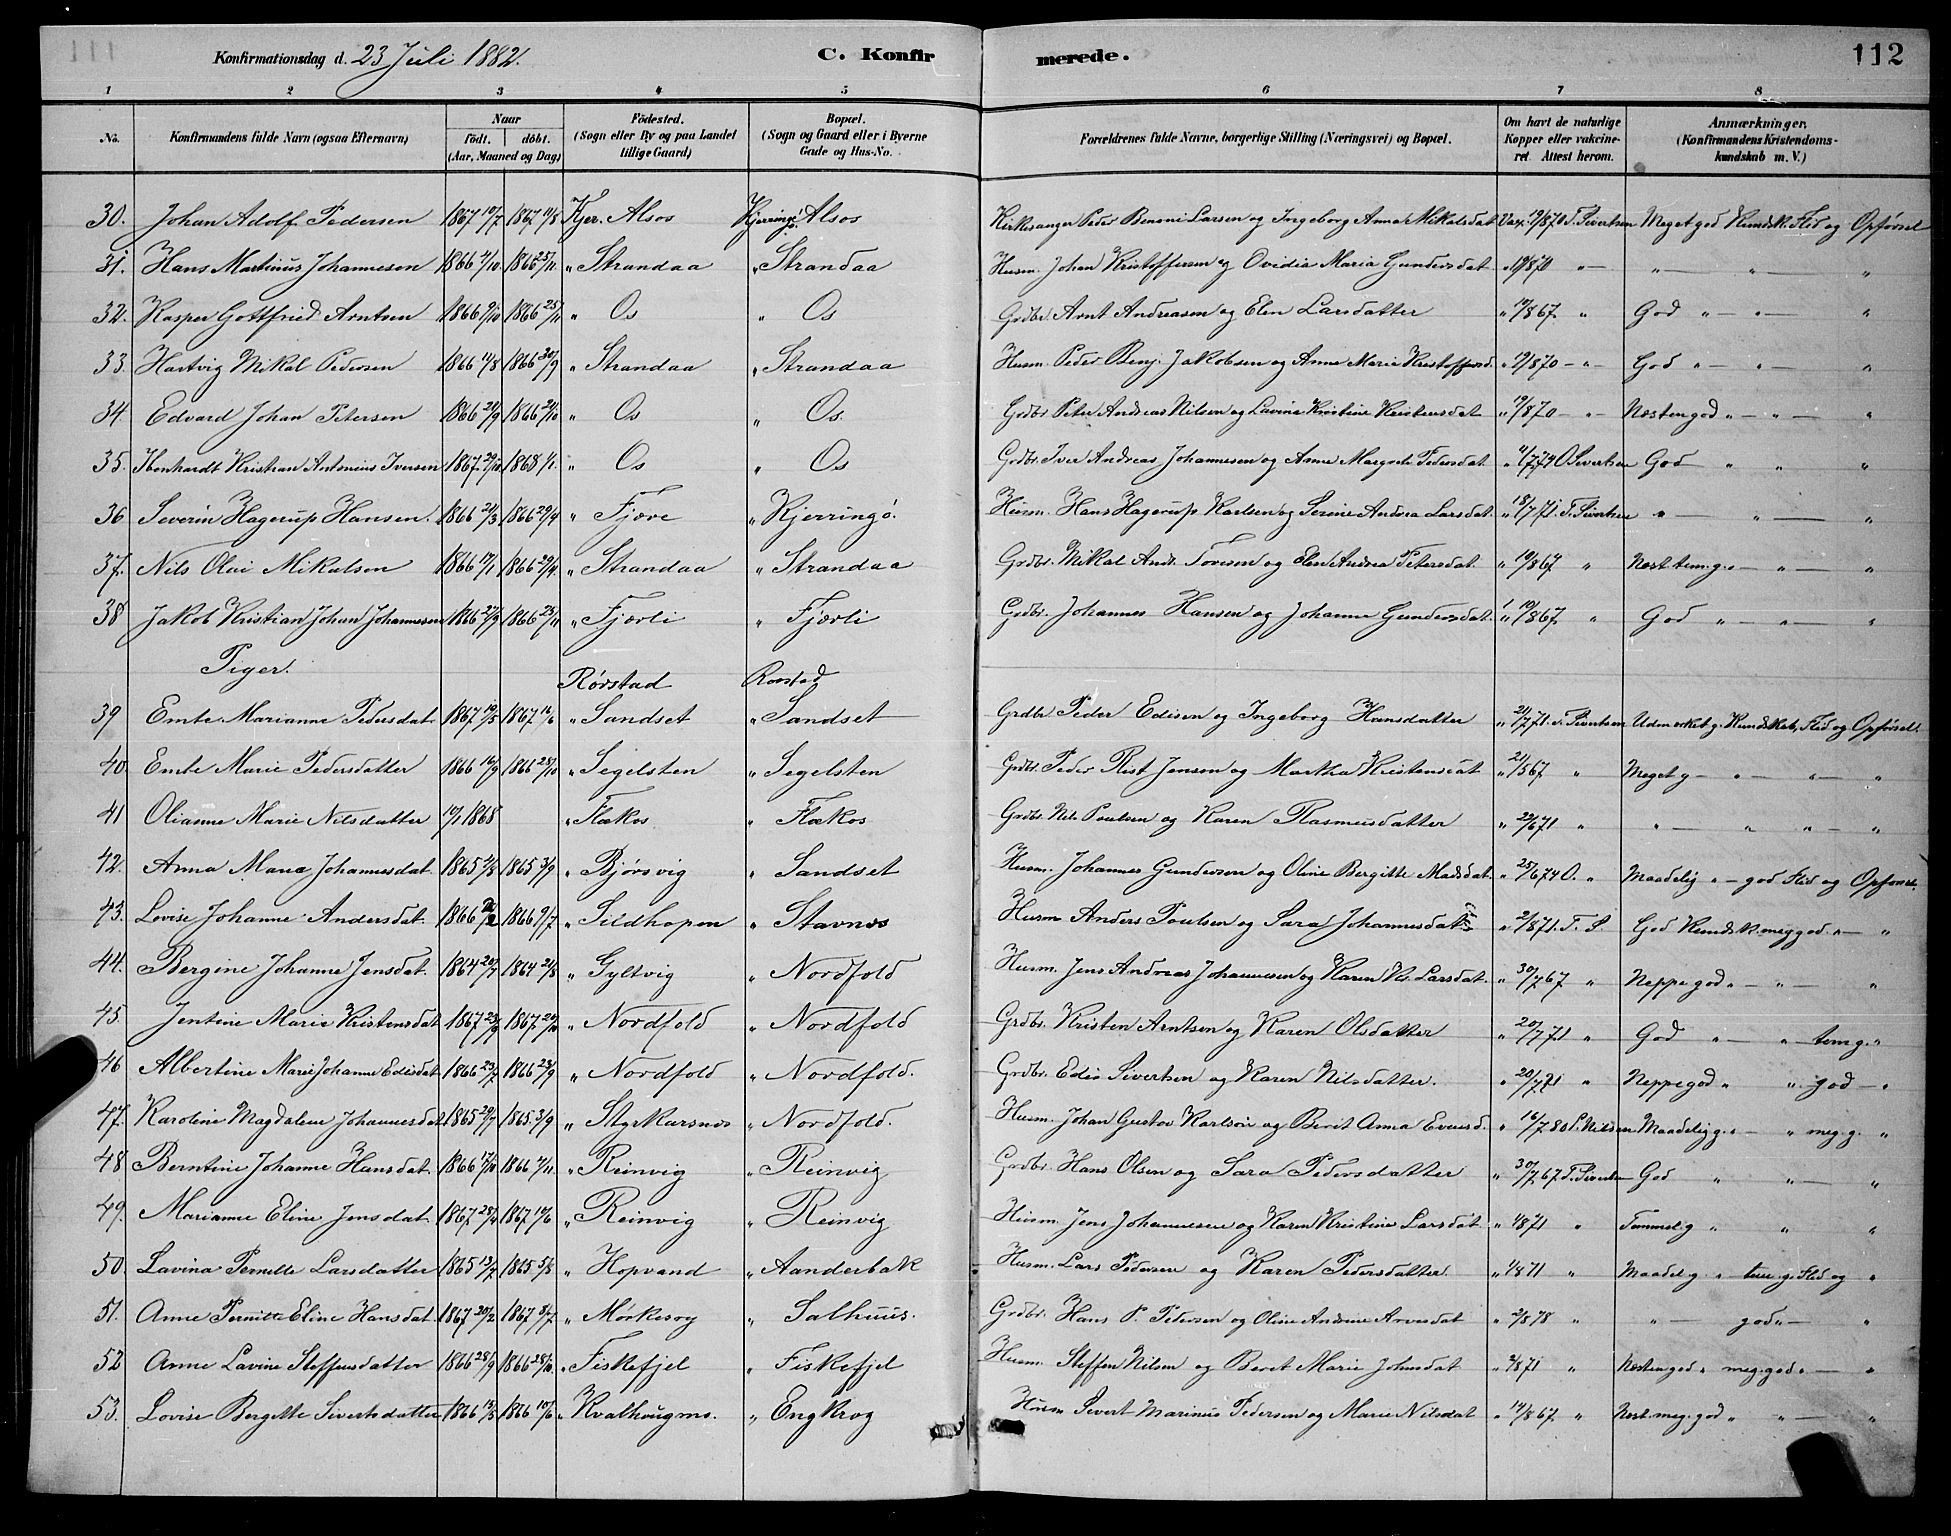 Konfirmationsdag d. 23 Juli 1882. C. Konfirmerede. 112
1 2 3 4 5 6 7 8
No. Konfirmandens fulde Navn (ogsaa Efternavn) Naar födt. döbt. (Aar, Maaned og Dag) Födested. (Sogn eller By og paa Landet tillige Gaard) Bopæl. (Sogn og Gaard eller i Byerne Gade og Hus-No. Forældrenes fulde Navne, borgerlige Stilling (Næringsvei) og Bopæl. Om havt de naturlige Kopper eller vakcineret Attest herom. Anmærkninger. (Konfirmandens Kristendomskundskab m. V.)
30. Johan Adolf Pedersen 1867 10/7 1867 11/8 Kjer. Alsos Kjerringö Alsos Kirkesanger Peder Benoni Larsen og Ingeborg Anna Mikalsdat Vax. 19/8 70 T. Sivertsen Meget god Kundsk. Flid og Opførsel
31. Hans Martinus Johannesen 1866 4/10 1866 25/11 " Strandaa " Strandaa Husm. Johan Kristoffersen og Ovidia Maria Gundersdat " 19/8 70 " — " — " — "
32. Kasper Gottfried Arntsen 1866 9/10 1866 25/11 " Os " Os Grdbr. Arnt Andreasen og Elen Larsdatter " 19/8 67 " God " — " — "
33. Hartvig Mikal Pedersen 1866 11/8 1866 30/9 " Strandaa " Strandaa Husm. Peder Benj. Jakobsen og Anne Marie Kristoffersd. " 19/8 70 — " — God " — " — "
34. Edvard Johan Petersen 1866 28/9 1866 21/10 " Os " Os. Grdbr. Peter Andreas Nilsen og Lavina Kristine Kristensdat " 19/8 70 — " — Næsten god " — " — "
35. Ibenhardt Kristian Antonius Iversen 1867 29/10 1868 1/1. " Os " Os Grdbr. Iver Andreas Johannesen og Anne Margrete Pedersdat " 11/7 74 O Sivertsen God " " "
36 Severin Hagerup Hansen. 1866 21/3 1866 29/4 " Fjære " Kjerringö. Husm. Hans Hagerup Karlsen og Serine Andrea Larsdat " 18/7 71. T. Sivertsen " — " — "
37. Nils Olai Mikalsen 1866 17/1 1866 29/4. " Strandaa " Strandaa Grdbr. Mikal Andr. Toresen og Elen Andrea Petersdat " 19/8 67 " Næst tem. g. " — " — "
38 Jakob Kristian Johan Johannesen 1866 27/9 1866 25/11 " Fjærli " Fjærli Grdbr. Johannes Hansen og Johanne Gundersdat " 19/8 67 " God " — " — "
Piger. Rørstad Rørstad
39 Emte Marianne Pedersdat 1867 19/5 1867 16/6 " Sandset " Sandset Grdbr Peder Edisen og Ingeborg Hansdatter " 21/7 71. T. Sivertsen Udmerket g. Kundskab, Flid og Opførsel.
40. Emte Marie Pedersdatter 1866 16/9 1866 28/10 " Segelsten " Segelsten Grdbr. Peder Rist Jensen og Martha Kristensdat " 21/5 67 " Meget g — " — " — "
41 Olianne Marie Nilsdatter 10/1 1868 " Flækos " Flækos Grdbr. Nils Poulsen og Karen Rasmusdatter " 22/6 71 " " — " " — "
42. Anna Maria Johannesdat. 1865 2/8 1865 3/9 " Bjørsvig " Sandset Husm. Johannes Gundersen og Oline Bergitte Madsdat. " 25/6 74 O. " Maadelig " — god Flid og Opførsel.
43. Lovise Johanne Andersdat. 1866 1866 9/7 " Sildhopen " Stavnes Husm Anders Poulsen og Sara Johannesdat " 2/8 71. T. S God Kundsk. meg. god. " — "
44. Bergine Johanne Jensdat. 1864 20/7 1864 21/8 " Gyltvig " Nordfold Husm. Jens Andreas Johannesen og Karen Kr. Larsdat. " 30/7 67 " Neppe god " — " — "
45. Jentine Marie Kristensdat 1867 23/9 1867 20/10 " Nordfold " Nordfold Grdbr. Kristen Arntsen og Karen Olsdatter " 20/7 71 " God " — " — tem g. "
46 Albertine Marie Johanne Edisdat 1866 23/7 1866 23/9 " Nordfold " Nordfold. Grdbr. Edis Sivertsen og Karen Nilsdatter. " 20/7 71 " Neppe god " " god — "
47. Karoline Magdalene Johannesdat 1865 29/7 1865 3/9 " Styrkarsnes " Nordfold. Husm. Johan Gustav Karlsön og Berit Anna Eversd. " 16/7 80 P. Nilsen Maadelig g. " — " meg. g. "
48 Berntine Johanne Hansdat. 1866 17/10 1866 4/11. " Reinvig " Reinvig Grdbr. Hans Olsen og Sara Pedersdatter " 30/7 67 T. Sivertsen God " " "
49. Marianne Eline Jensdat. 1867 28/4 1867 10/6 " Reinvig " Reinvig Husm. Jens Johannesen og Karen Kristine Larsdat. " 4/8 71 " Temmel. g " " "
50. Lavina Pernille Larsdatter 1865 13/7 1865 5/8 " Hopvand " Aanderbak Husm. Lars Pedersen og Karen Pedersdatter. " 4/8 71 " Maadel. g. " tem. g. Flid og "
51. Anne Pernille Eline Hansdat. 1867 20/2 1867 8/7 " Mørkesvg " Salhuus. Grdbr. Hans P. Pedersen og Oline Andrine Arvesdat " 2/8 78 " " — god " — "
52 Anne Lavine Steffensdatter 1866 28/9 1866 28/10. " Fiskefjel " Fiskefjel Husm. Steffen Nilsen og Beret Marie Johnsdat " 2/8 71 " Næsten god " meg. god. " — "
53. Lovise Bergitte Sivertsdatter 1866 13/5 1866 10/6 " Kvalhougms. " Engkrog Husm Sivert Marinus Pedersen og Marie Nilsdat " 14/8 67 " Næst. meg. god " " — "